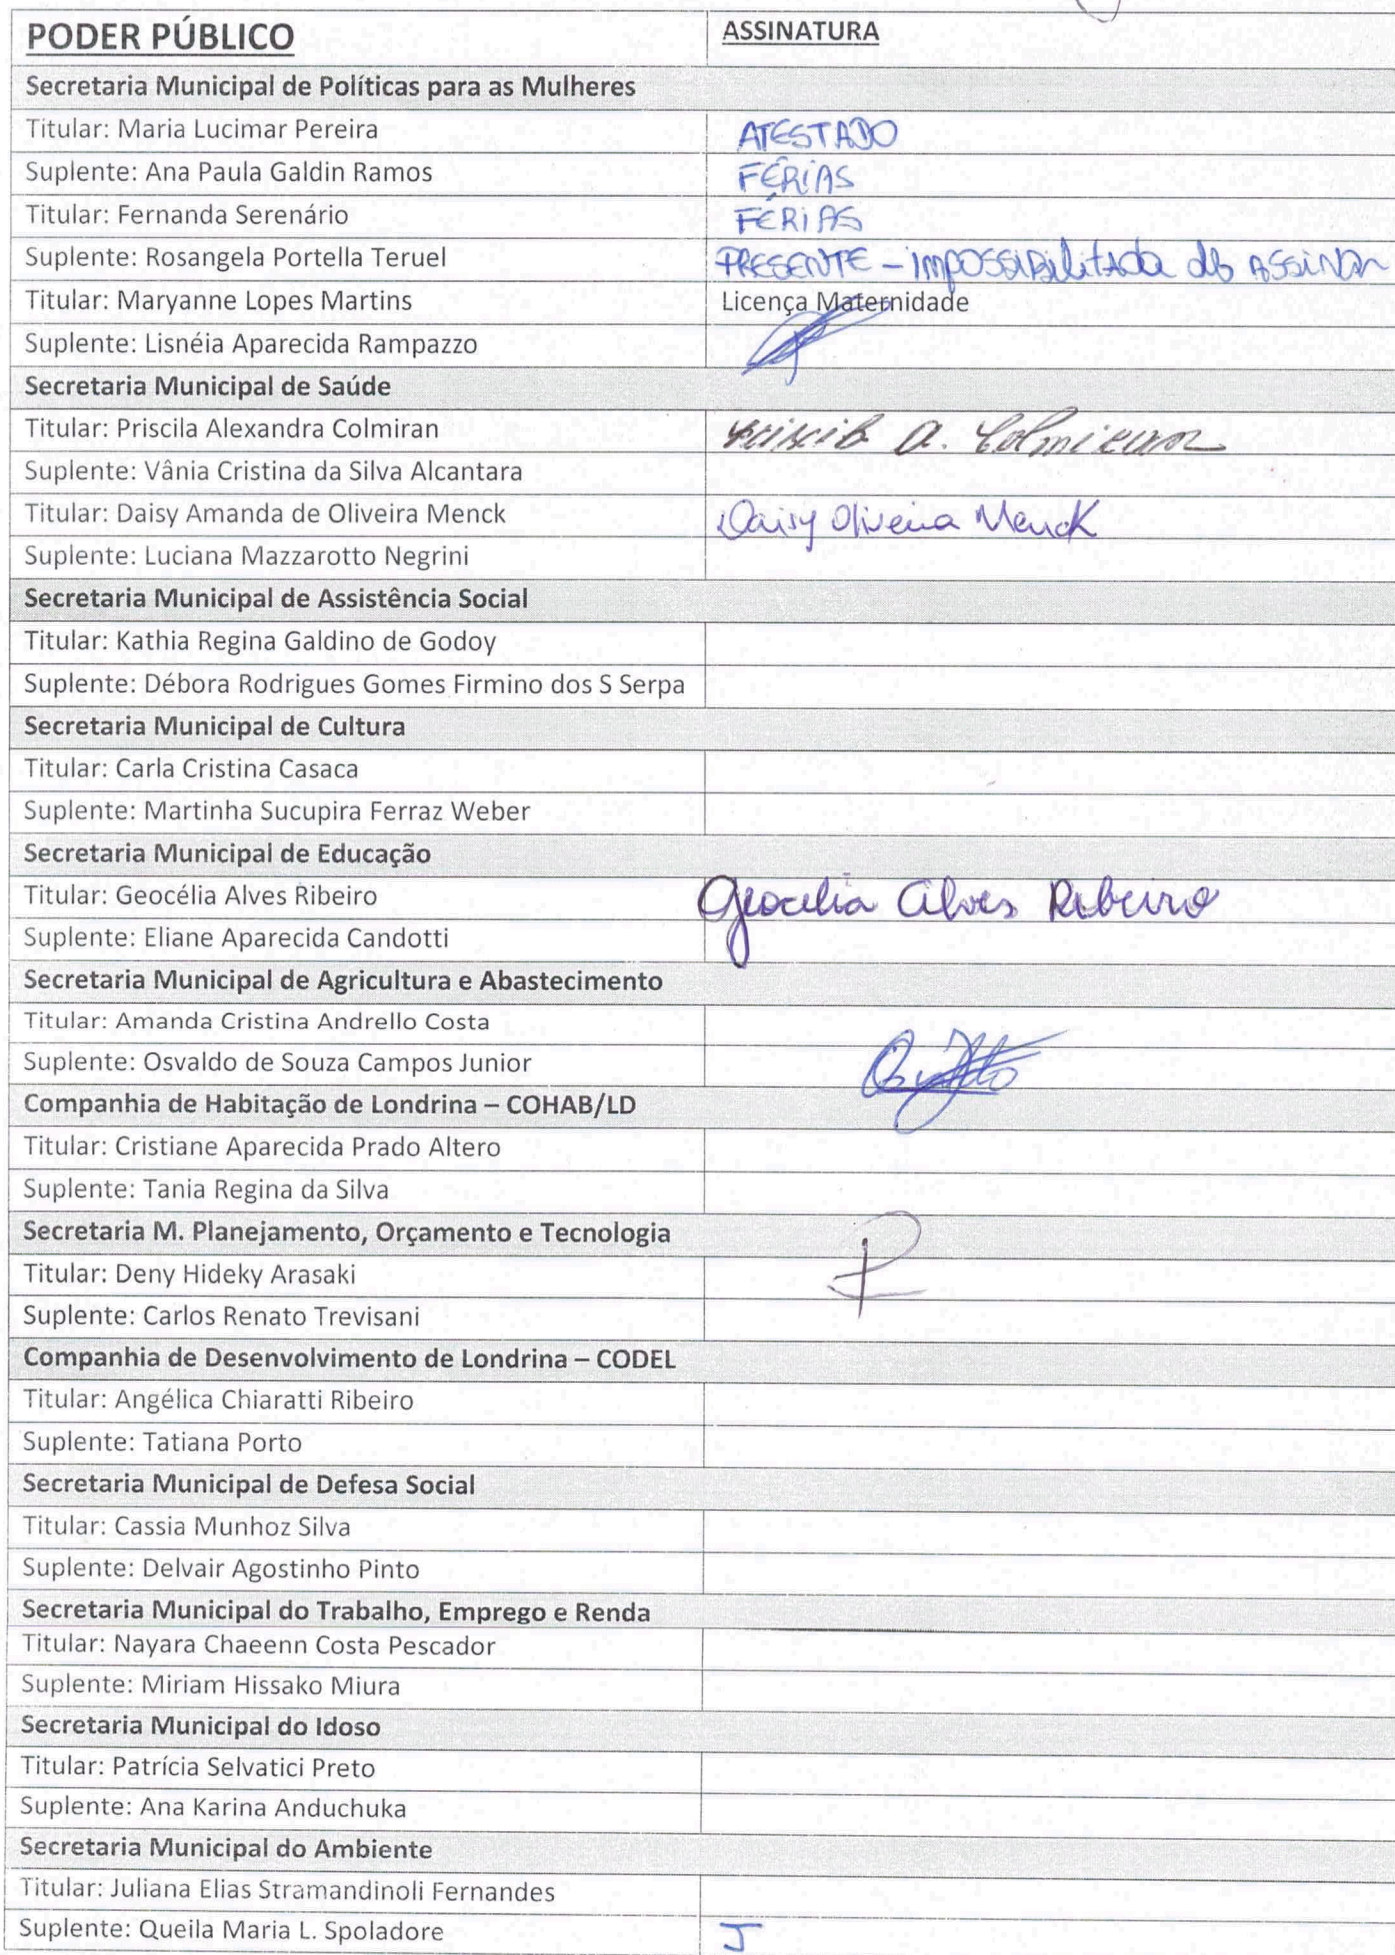 PODER PÚBLICO ASSINATURA
Secretaria Municipal de Políticas para as Mulheres
Titular: Maria Lucimar Pereira ATESTADO
Suplente: Ana Paula Galdin Ramos FÉRIAS
Titular: Fernanda Serenário FÉRIAS
Suplente: Rosangela Portella Teruel PRESENTE - IMPOSSIBILITADA DE ASSINAR
Titular: Maryanne Lopes Martins Licença Maternidade
Suplente: Lisnéia Aparecida Rampazzo
Secretaria Municipal de Saúde
Titular: Priscila Alexandra Colmiran Priscila A. Colmiran
Suplente: Vânia Cristina da Silva Alcantara
Titular: Daisy Amanda de Oliveira Menck Daisy Oliveira Menck
Suplente: Luciana Mazzarotto Negrini
Secretaria Municipal de Assistência Social
Titular: Kathia Regina Galdino de Godoy
Suplente: Débora Rodrigues Gomes Firmino dos S Serpa
Secretaria Municipal de Cultura
Titular: Carla Cristina Casaca
Suplente: Martinha Sucupira Ferraz Weber
Secretaria Municipal de Educação
Titular: Geocélia Alves Ribeiro Geocelia Alves Ribeiro
Suplente: Eliane Aparecida Candotti
Secretaria Municipal de Agricultura e Abastecimento
Titular: Amanda Cristina Andrello Costa
Suplente: Osvaldo de Souza Campos Junior
Companhia de Habitação de Londrina – COHAB/LD
Titular: Cristiane Aparecida Prado Altero
Suplente: Tania Regina da Silva
Secretaria M. Planejamento, Orçamento e Tecnologia
Titular: Deny Hideky Arasaki
Suplente: Carlos Renato Trevisani
Companhia de Desenvolvimento de Londrina – CODEL
Titular: Angélica Chiaratti Ribeiro
Suplente: Tatiana Porto
Secretaria Municipal de Defesa Social
Titular: Cassia Munhoz Silva
Suplente: Delvair Agostinho Pinto
Secretaria Municipal do Trabalho, Emprego e Renda
Titular: Nayara Chaeenn Costa Pescador
Suplente: Miriam Hissako Miura
Secretaria Municipal do Idoso
Titular: Patrícia Selvatici Preto
Suplente: Ana Karina Anduchuka
Secretaria Municipal do Ambiente
Titular: Juliana Elias Stramandinoli Fernandes
Suplente: Queila Maria L. Spoladore J